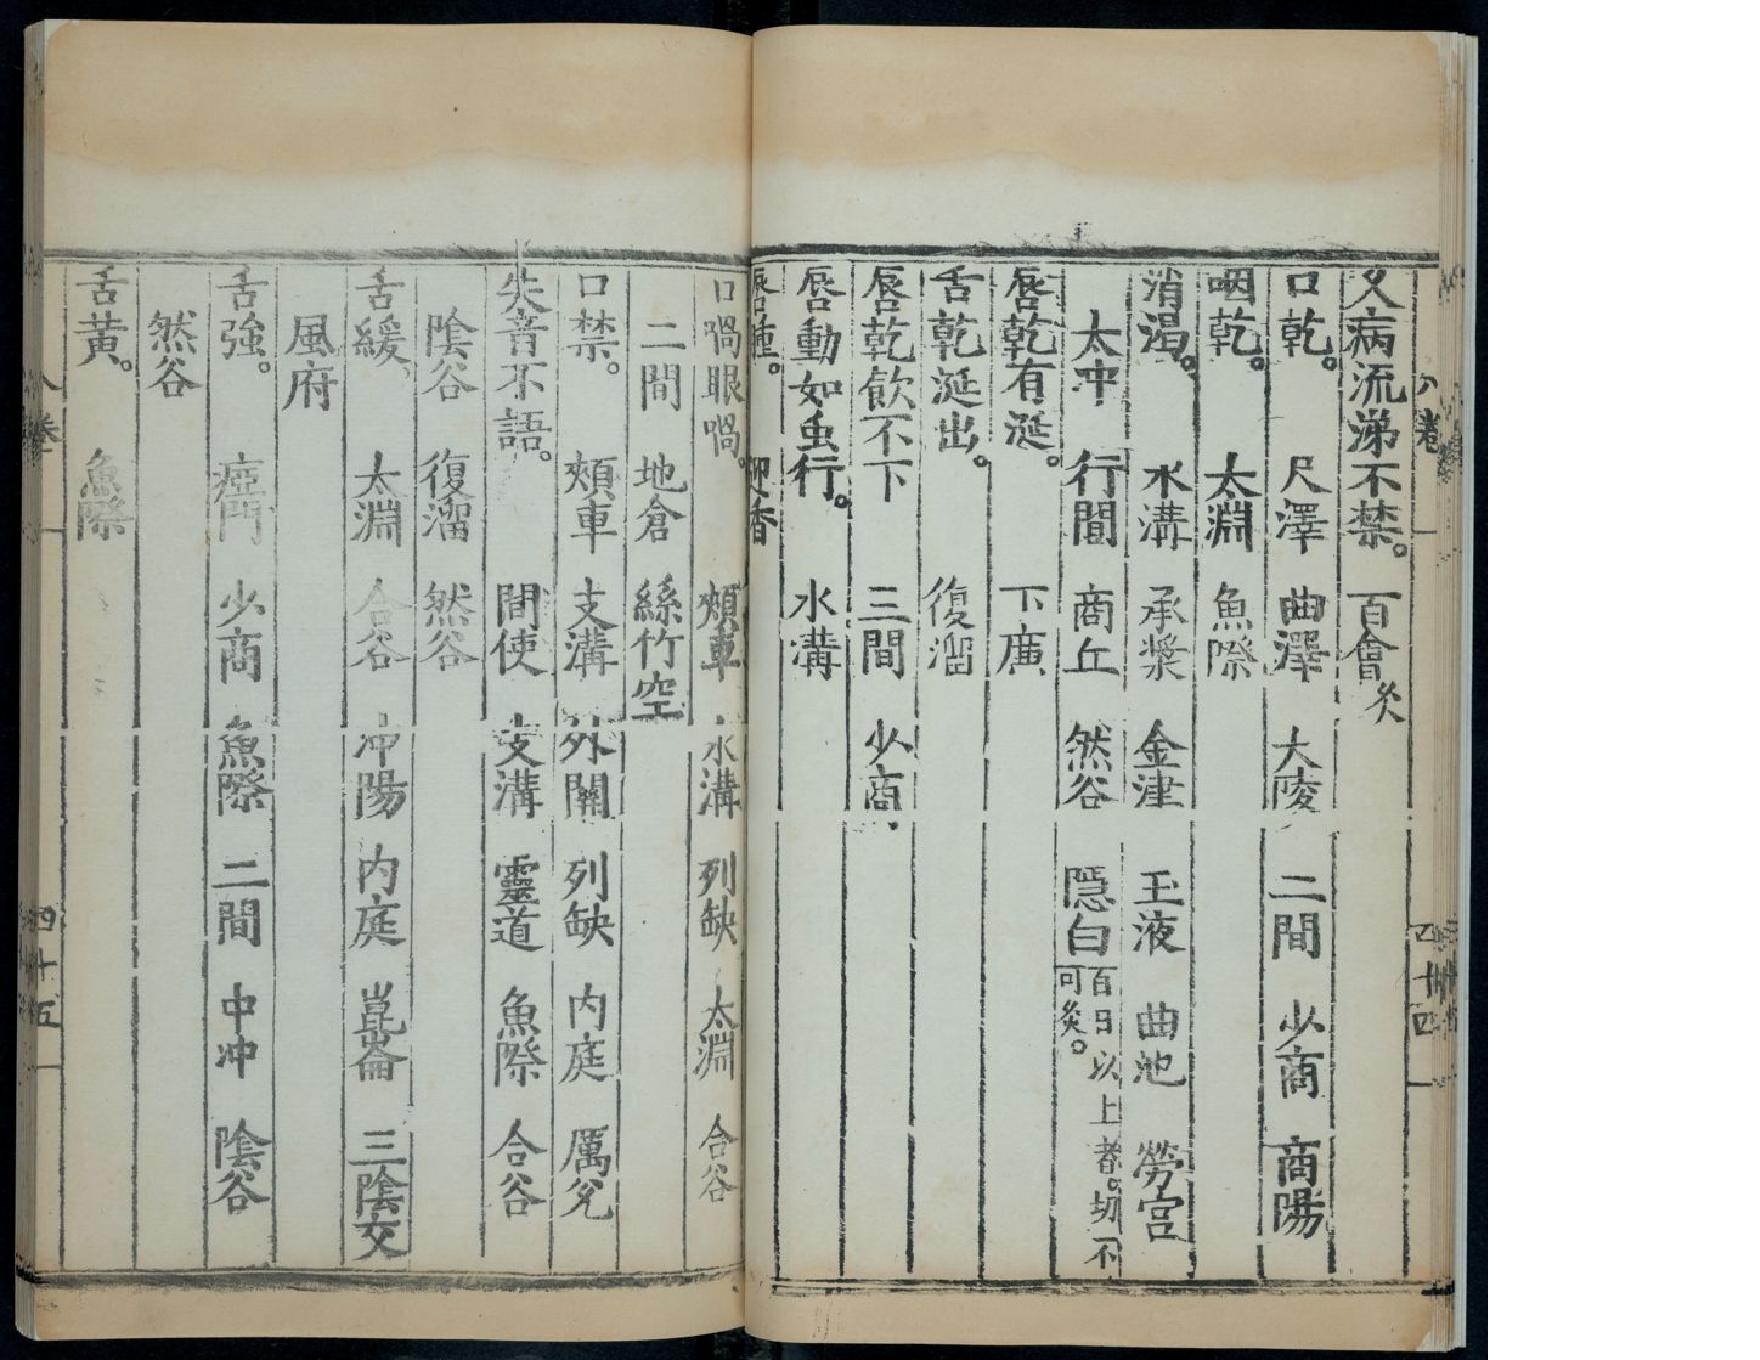 八卷
四十四
久病流涕不禁。 百會灸
口乾。 尺澤 曲澤 大陵 二間 少商 商陽
咽乾。 太淵 魚際
消渴。 水溝 承漿 金津 玉液 曲池 勞宮
太冲 行間 商丘 然谷 隱白百日以上者。切不可灸。
唇乾有涎。 下廉
舌乾涎出。 復溜
唇乾飲不下 三間 少商
唇動如虫行。 水溝
唇腫。 迎香
口喎眼喎。 頰車 水溝 列缺 太淵 合谷
二間 地倉 絲竹空
口禁。 頰車 支溝 外關 列缺 内庭 厲兌
失音不語。 間使 支溝 靈道 魚際 合谷
陰谷 復溜 然谷
舌緩、 太淵 合谷 冲陽 内庭 崑崙 三陰交
風府
舌強。 瘂門 少商 魚際 二間 中冲 陰谷
然谷
舌黃。 魚際
八卷
四十五